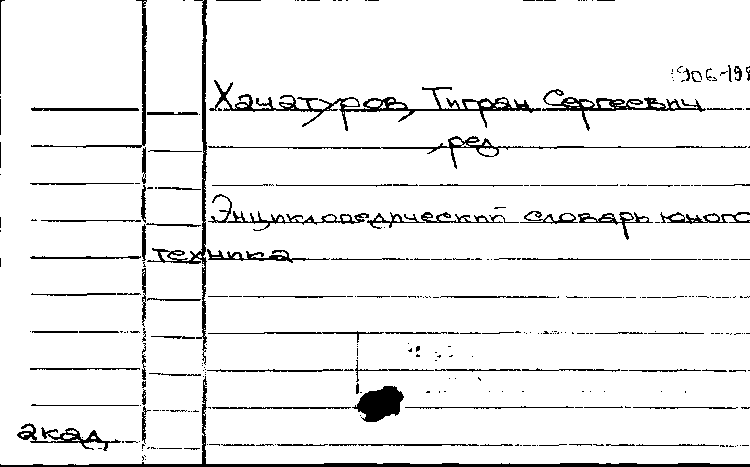 1906-198
Хачатуров, Тигран Сергеевич
, ред
Энциклопедический словарь юного
техника
акад,